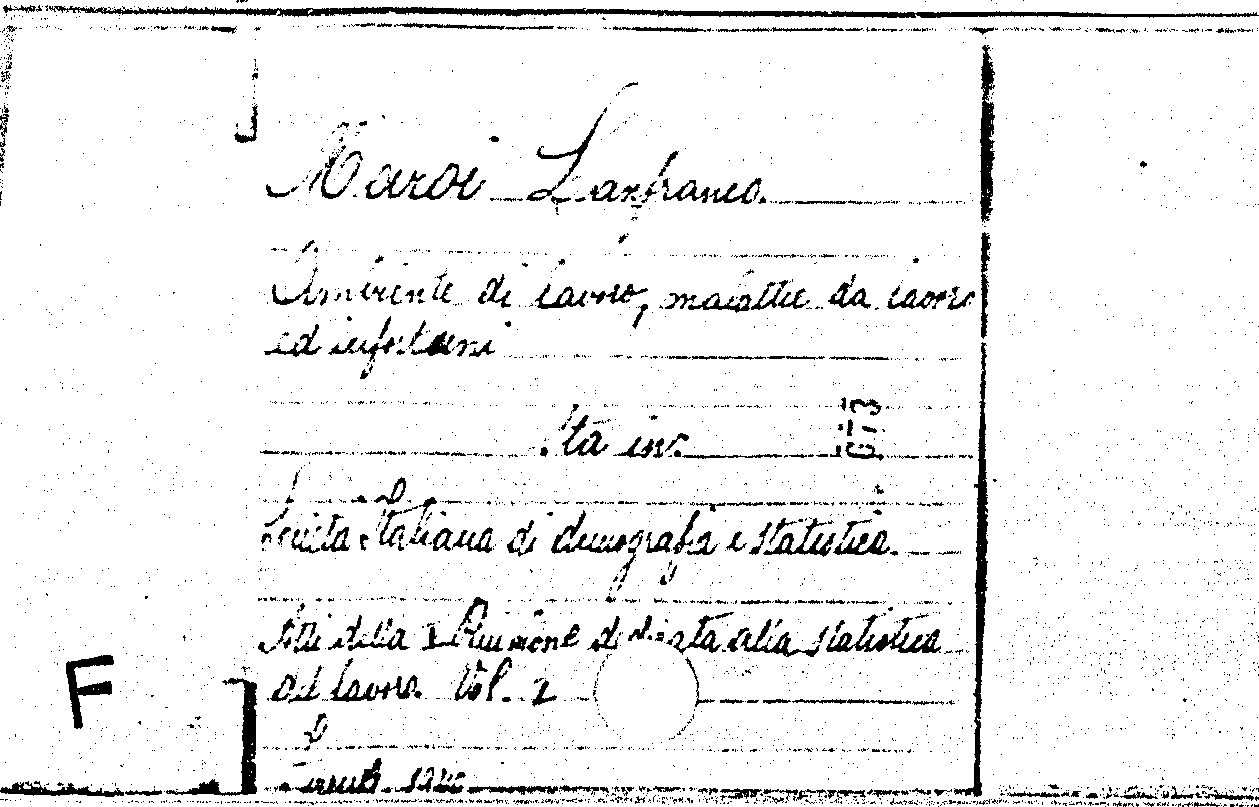 Maroi Lanfranco.
Ambiente di lavoro, malattie da lavoro
ed infortuni
Sta in:
Società Italiana di demografia e statistica.
Atti della X Riunione dedicata alla statistica
del lavoro. Vol. 2
F